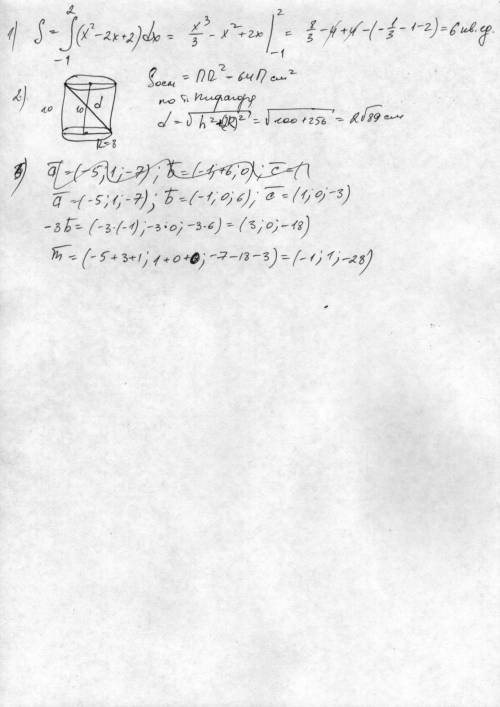 1) S = ∫₋₁² (x²-2x+2)dx = x³/3 - x² + 2x |₋₁² = 8/3 - 4 + 4 - (-1/3 - 1 - 2) = 6 кв. ед.
2) Sосн = ПR² - 64П см²
10 10 d
по т. Пифагора
R=8
d = √(h²+(2R)²) = √(100+256) = 2√89 см
3) a̅ = (-5; 1; -7); b̅ = (-1; +6; 0); c̅ = (1
a̅ = (-5; 1; -7); b̅ = (-1; 0; 6); c̅ = (1; 0; -3)
-3b̅ = (-3·(-1); -3·0; -3·6) = (3; 0; -18)
m̅ = (-5+3+1; 1+0+0; -7-18-3) = (-1; 1; -28)